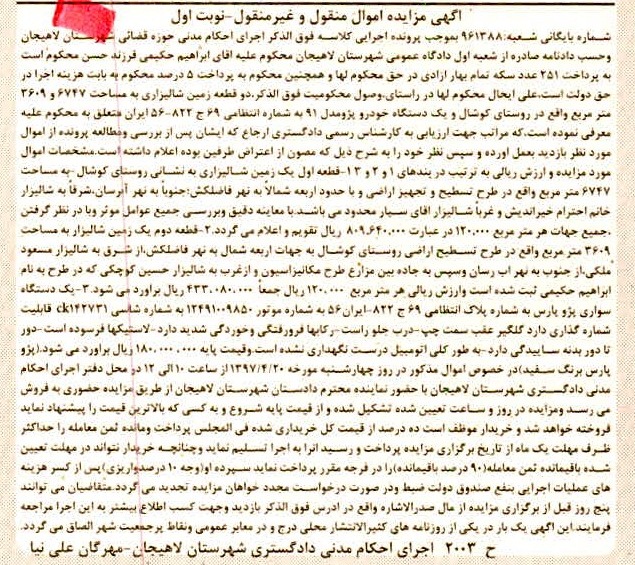 آگهی مزایده اموال منقول و غیرمنقول-نوبت اول
شماره بایگانی شعبه:۹۶۱۳۸۸ بموجب پرونده اجرایی کلاسه فوق الذکر اجرای احکام مدنی حوزه قضائی شهرستان لاهیجان
وحسب دادنامه صادره از شعبه اول دادگاه عمومی شهرستان لاهیجان محکوم علیه اقای ابراهیم حکیمی فرزند حسن محکوم است
به پرداخت ۲۵۱ عدد سکه تمام بهار ازادی در حق محکوم لها و همچنین محکوم به پرداخت ۵ درصد محکوم به بابت هزینه اجرا در
حق دولت است،علی ایحال محکوم لها در راستای،وصول محکومیت فوق الذکر،دو قطعه زمین شالیزاری به مساحت ۶۷۴۷ و ۳۶۰۹
متر مربع واقع در روستای کوشال و یک دستگاه خودرو پژومدل ۹۱ به شماره انتظامی ۶۹ ج ۸۲۲-۵۶ ایران متعلق به محکوم علیه
معرفی نموده است،که مراتب جهت ارزیابی به کارشناس رسمی دادگستری ارجاع که ایشان پس از بررسی ومطالعه پرونده از اموال
مورد نظر بازدید بعمل اورده و سپس نظر خود را به شرح ذیل که مصون از اعتراض طرفین بوده اعلام داشته است.مشخصات اموال
مورد مزایده و ارزش ریالی به ترتیب در بندهای ۱ و ۲ و ۳ ۱-قطعه اول یک زمین شالیزاری به نشانی روستای کوشال-به مساحت
۶۷۴۷ متر مربع واقع در طرح تسطیح و تجهیز اراضی و با حدود اربعه شمالاً به نهر فاضلکش؛جنوباً به نهر آبرسان،شرقاً به شالیزار
خانم احترام خیراندیش و غرباً شالیزار اقای سیار محدود می باشد.با معاینه دقیق وبررسی جمیع عوامل موثر وبا در نظر گرفتن
،جمیع جهات هر متر مربع ۱۲۰.۰۰۰ در عبارت ۸۰۹.۶۴۰.۰۰۰ ریال تقویم و اعلام می گردد.۲-قطعه دوم یک زمین شالیزار به مساحت
۳۶۰۹ متر مربع واقع در طرح تسطیح اراضی روستای کوشال به جهات اربعه شمال به نهر فاضلکش،از شرق به شالیزار مسعود
ملکی،از جنوب به نهر اب رسان وسپس به جاده بین مزارع طرح مکانیزاسیون و ازغرب به شالیزار حسین کوچکی که در طرح به نام
ابراهیم حکیمی ثبت شده است وارزش ریالی هر متر مربع ۱۲۰.۰۰۰ریال جمعاً ۴۳۳.۰۸۰.۰۰۰ ریال براورد می شود.۳-یک دستگاه
سواری پژو پارس به شماره پلاک انتظامی ۶۹ ج ۸۲۲-ایران۵۶ به شماره موتور ۱۲۴۹۱۰۰۹۸۵۰ به شماره شاسی ck۱۴۲۷۳۱ قابلیت
شماره گذاری دارد گلگیر عقب سمت چپ-درب جلو راست-رکابها فرورفتگی وخوردگی شدید دارد-لاستیکها فرسوده است-دور
تا دور بدنه ساییدگی دارد-به طور کلی اتومبیل درست نگهداری نشده است.وقیمت پایه ۱۸۰.۰۰۰.۰۰۰ ریال براورد می شود.(پژو
پارس برنگ سفید)در خصوص اموال مذکور در روز چهارشنبه مورخه ۱۳۹۷/۴/۲۰ از ساعت ۱۰ الی ۱۲ در محل دفتر اجرای احکام
مدنی دادگستری شهرستان لاهیجان با حضور نماینده محترم دادستان شهرستان لاهیجان از طریق مزایده حضوری به فروش
می رسد ومزایده در روز و ساعت تعیین شده تشکیل شده و از قیمت پایه شروع و به کسی که بالاترین قیمت را پیشنهاد نماید
فروخته خواهد شد و خریدار موظف است ده درصد از قیمت کل خریداری شده فی المجلس پرداخت ومانده ثمن معامله را حداکثر
ظرف مهلت یک ماه از تاریخ برگزاری مزایده پرداخت و رسید انرا به اجرا تسلیم نماید وچنانچه خریدار نتواند در مهلت تعیین
شده باقیمانده ثمن معامله(۹۰ درصد باقیمانده)را در فرجه مقرر پرداخت نماید سپرده او(وجه ۱۰ درصدواریزی)پس از کسر هزینه
های عملیات اجرایی بنفع صندوق دولت ضبط ودر صورت درخواست مجدد خواهان مزایده تجدید می گردد.متقاضیان می توانند
پنج روز قبل از برگزاری مزایده از مال صدرالاشاره واقع در ادرس فوق الذکر بازدید وجهت کسب اطلاع بیشتر به این اجرا مراجعه
فرمایند.این آگهی یک بار در یکی از روزنامه های کثیرالانتشار محلی درج و در معابر عمومی ونقاط پرجمعیت شهر الصاق می گردد.
ح ۲۰۰۳ اجرای احکام مدنی دادگستری شهرستان لاهیجان-مهرگان علی نیا